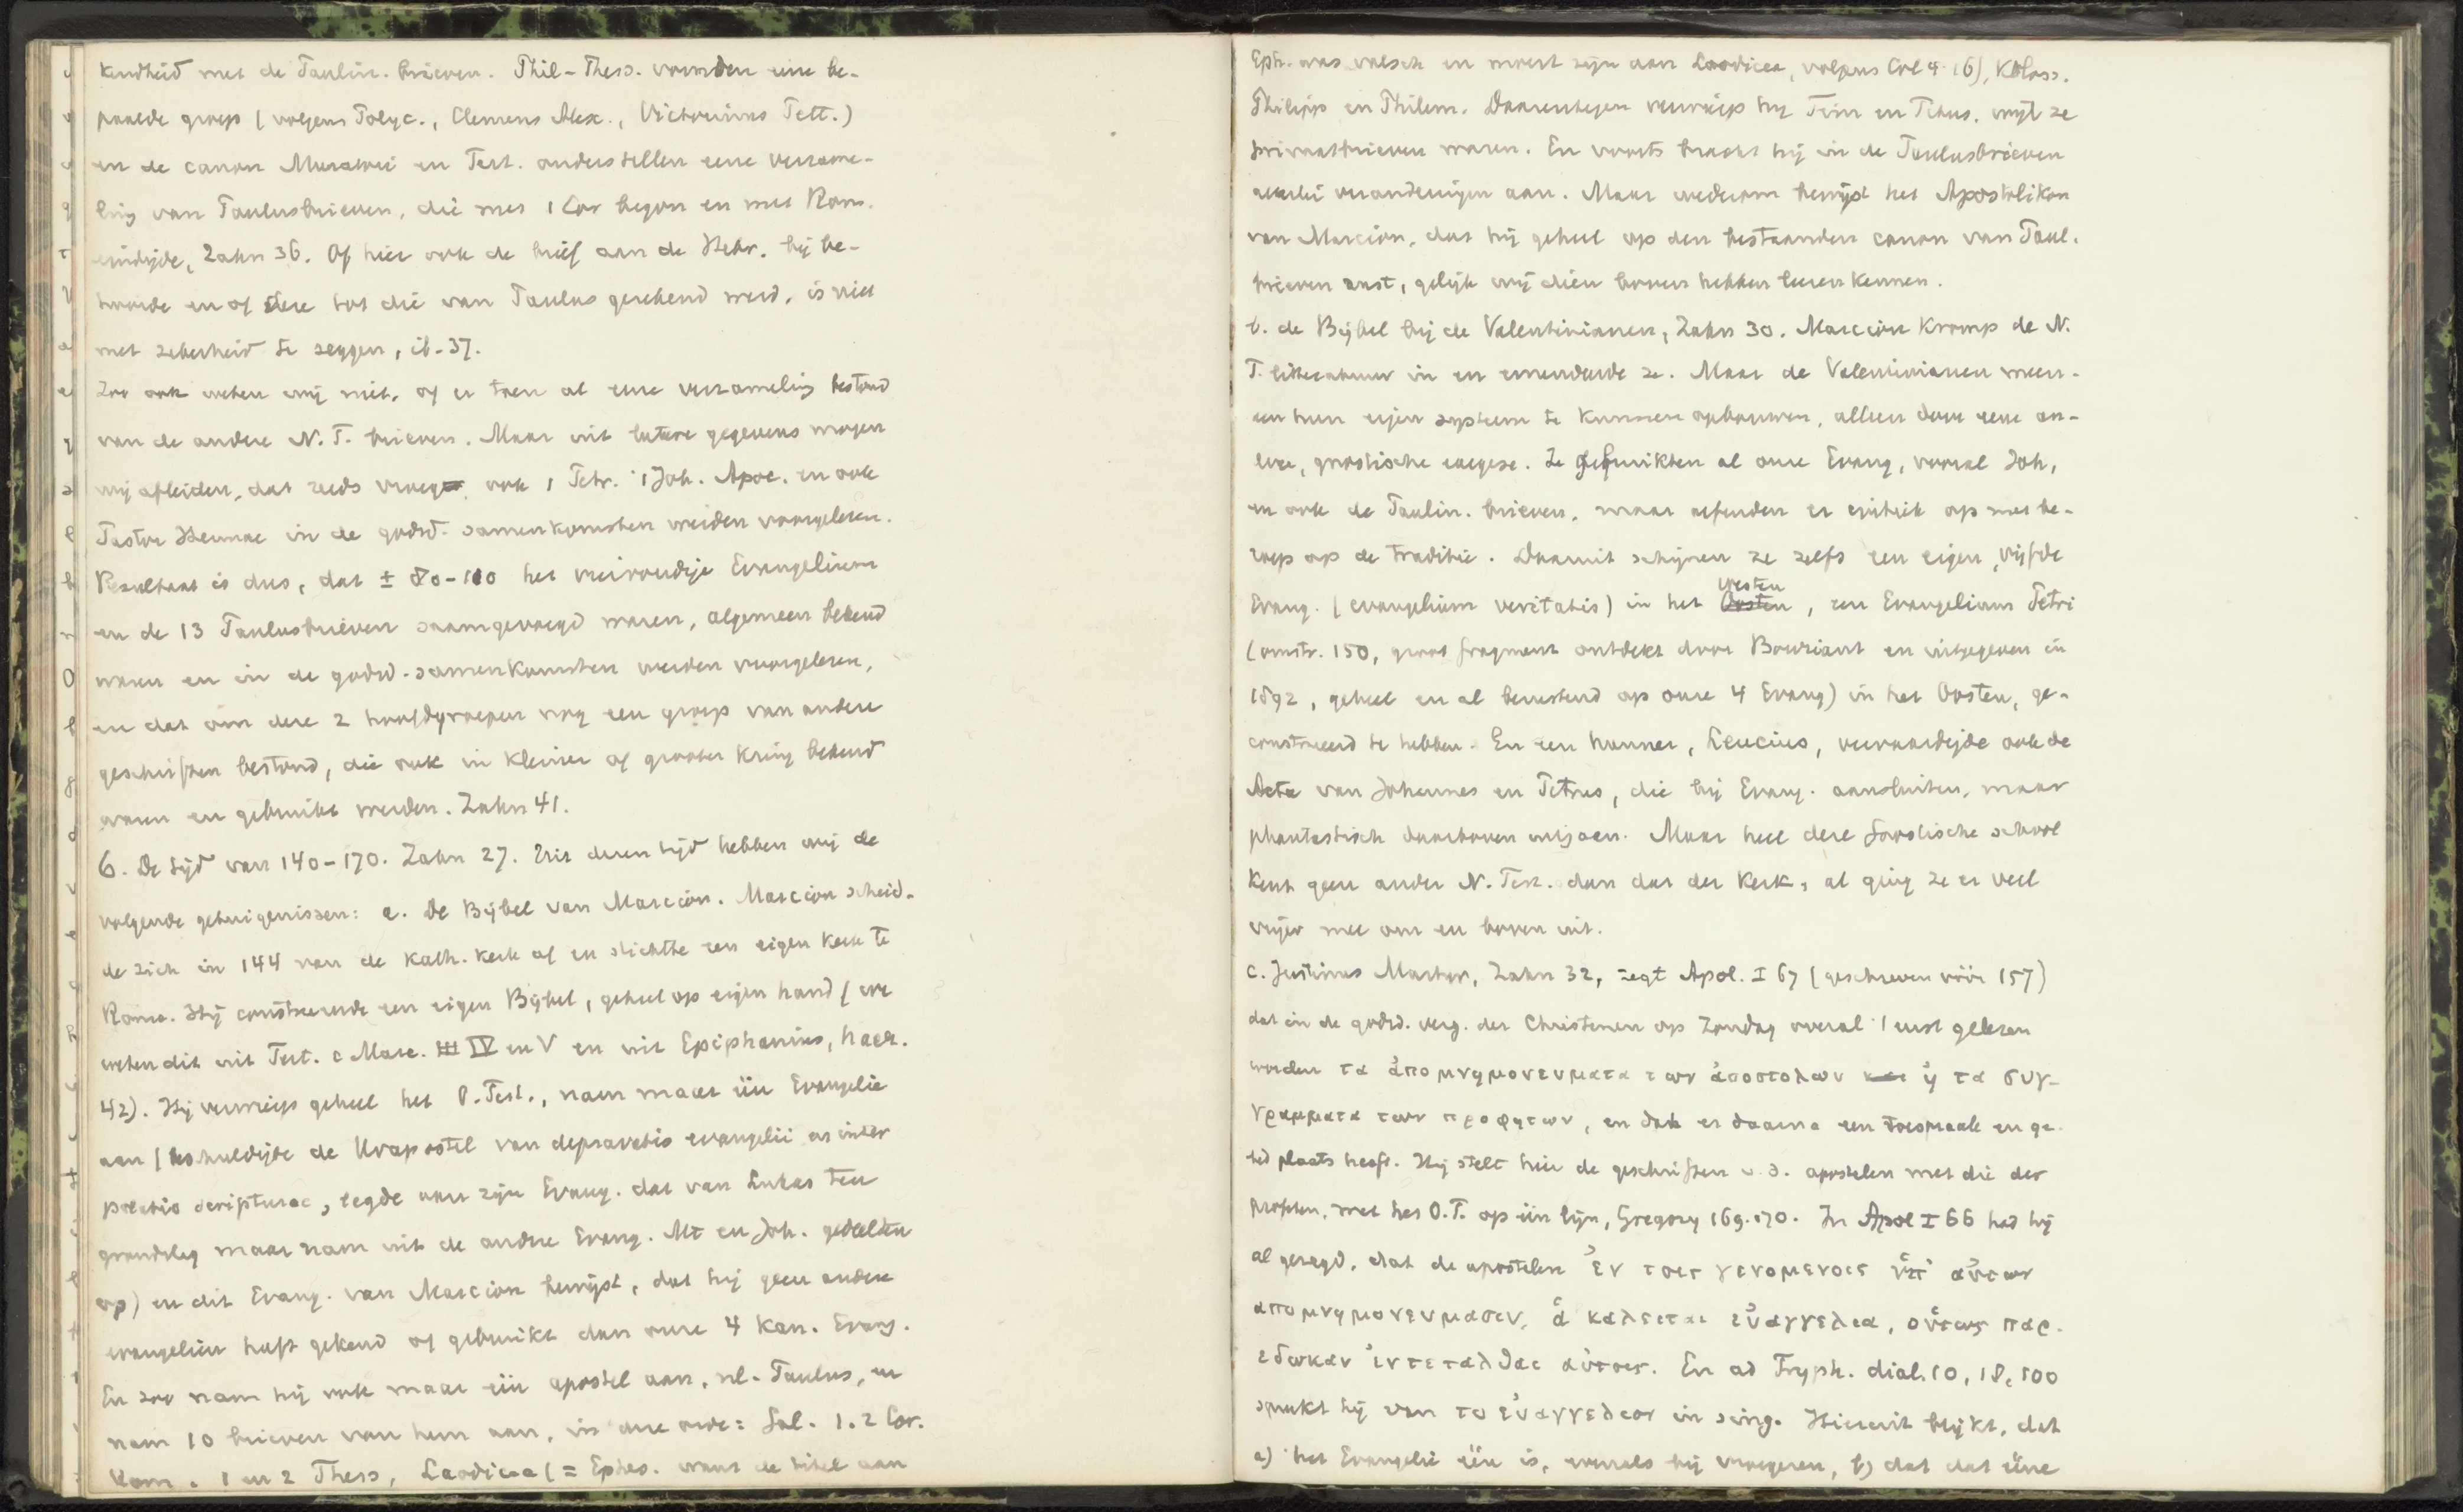 kendheid met de Paulin. brieven. Phil-Thess. vormden eene be-
paalde groep (volgens Polyc., Clemens Alex., Victorinus Pett.)
en de canon Muratorii en Tert. onderstellen eene verzame-
ling van Paulusbrieven, die met 1 Cor begon en met Rom.
eindigde, Zahn 36. Of hier ook de brief aan de Hebr. bij be-
hoorde en of deze tot die van Paulus gerekend werd, is niet
met zekerheid te zeggen, ib. 37.
Zoo ook weten wij niet, of er toen al eene verzameling bestond
van de andere N. T. brieven. Maar uit latere gegevens mogen
wij afleiden, dat reeds vroeg ook 1 Petr. 1 Joh. Apoc. en ook
Pastor Hermae in de godsd. samenkomsten werden voorgelezen.
Resultaat is dus, dat ± 80-110 het viervoudige Evangelium
en de 13 Paulusbrieven saamgevoegd waren, algemeen bekend
waren en in de godsd. samenkomsten werden voorgelezen,
en dat om deze 2 hoofdgroepen nog een groep van andere
geschriften bestond, die ook in kleiner of grooter kring bekend
waren en gebruikt werden. Zahn 41.
6. De tijd van 140-170. Zahn 27. Uit dezen tijd hebben wij de
volgende getuigenissen: a. De Bijbel van Marcion. Marcion scheid-
de zich in 144 van de Kath. kerk af en stichtte een eigen kerk te
Rome. Hij construeerde een eigen Bijbel, geheel op eigen hand (we
weten dit uit Tert. c Marc. III IV en V en uit Epiphanius, haer.
42). Hij verwierp geheel het O. Test., nam maar één Evangelie
aan (beschuldigde de Urapostel van depravatio evangelii en inter
polatio scripturae, legde aan zijn Evang. dat van Lukas ten
grondslag maar nam uit de andere Evang. Mt en Joh. gedeelten
op) en dit Evang. van Marcion bewijst, dat hij geen andere
evangeliën heeft gekend of gebruikt dan onze 4 Kan. Evang.
En zoo nam hij ook maar één apostel aan, nl. Paulus, en
nam 10 brieven van hem aan, in deze orde: Gal. 1. 2 Cor.
Rom. 1 en 2 Thess, Laodicea (= Ephes. want de titel aan
Eph. was valsch en moest zijn aan Laodicea, volgens Col 4:16), Koloss.
Philipp en Philem. Daarentegen verwierp hij Tim en Titus, wijl ze
privaatbrieven waren. En voorts bracht hij in de Paulusbrieven
allerlei veranderingen aan. Maar wederom bewijst het Apostolikon
van Marcion, dat hij geheel op den bestaanden canon van Paul.
brieven rust, gelijk wij dien boven hebben leeren kennen.
b. de Bijbel bij de Valentinianen, Zahn 30. Marcion kromp de N.
T. litteratuur in en emendeerde ze. Maar de Valentinianen meen-
en hun eigen systeem te kunnen opbouwen, alleen door eene an-
dere, gnostische exegese. Ze gebruikten al onze Evang, vooral Joh,
en ook de Paulin. brieven, maar oefenden er critiek op met be-
roep op de traditie. Daaruit schijnen ze zelfs een eigen, vijfde
Evang. (evangelium veritatis) in het Oosten Westen, een Evangelium Petri
(omstr. 150, groot fragment ontdekt door Bouriant en uitgegeven in
1892, geheel en al berustend op onze 4 Evang) in het Oosten, ge-
construeerd te hebben. En een hunner, Leucius, vervaardigde ook de
Acta van Johannes en Petrus, die bij Evang. aansluiten, maar
phantastisch daarboven uitgaan. Maar heel deze Gnostische school
kent geen ander N. Test. dan dat der kerk, al ging ze er veel
vrijer mee om en boven uit.
c. Justinus Martyr, Zahn 32, zegt Apol. I 67 (geschreven vóór 157)
dat in de godsd. verg. der Christenen op Zondag overal eerst gelezen
worden τα ἀπομνημονευματα των ἀποστολων και ἠ τα συγ-
γραμματα των προφητων, en dat er daarna een toespraak en ge-
bed plaats heeft. Hij stelt hier de geschriften v. d. apostelen met die der
profeten, met het O. T. op één lijn, Gregory 169. 170. In Apol I 66 had hij
al gezegd, dat de apostelen ἐν τοις γενομενοις ὑπ' αὐτων
απομνημονευμασιν, ἁ καλειται εὐαγγελια, οὑτως παρ-
εδωκαν ἐντεταλθαι αὐτοις. En ad Tryph. dial. 10, 18, 100
spreekt hij van το εὐαγγελιον in sing. Hieruit blijkt, dat
a) het Evangelie één is, evenals bij vroegeren, b) dat dat ééne